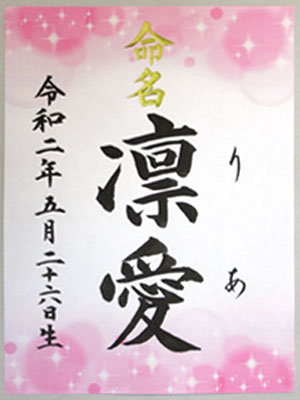 命名
りあ
凛愛
令和二年五月二十六日生